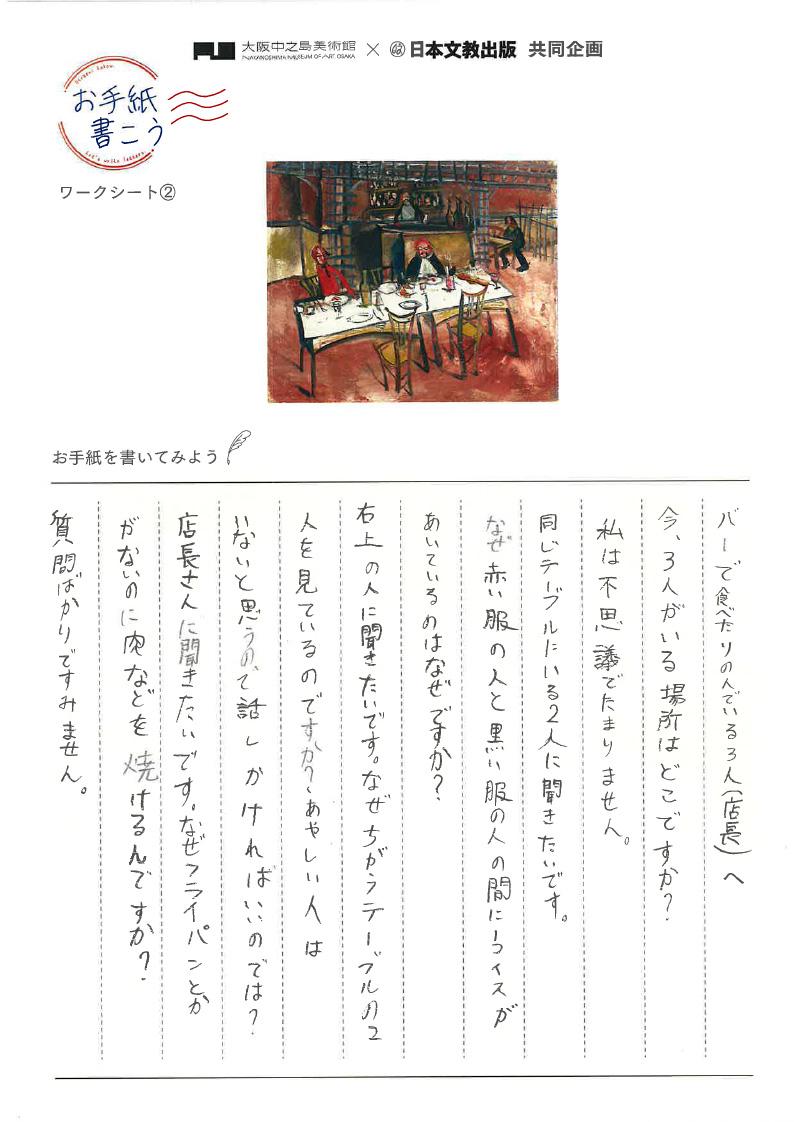 大阪中之島美術館
NAKANOSHIMA MUSEUM OF ART, OSAKA
×
日本文教出版 共同企画
お手紙
書こう
Let's write letters.
ワークシート②
お手紙を書いてみよう
バーで食べたりのんでいる3人(店長)へ
今、3人がいる場所はどこですか?
私は不思議でたまりません。
同じテーブルにいる2人に聞きたいです。
なぜ赤い服の人と黒い服の人の間に1つイスが
あいているのはなぜですか?
右上の人に聞きたいです。なぜちがうテーブルの2
人を見ているのですか?、あやしい人は
いないと思うので話しかければいいのでは?
店長さんに聞きたいです。なぜフライパンとか
がないのに肉などを焼けるんですか?
質問ばかりですみません。